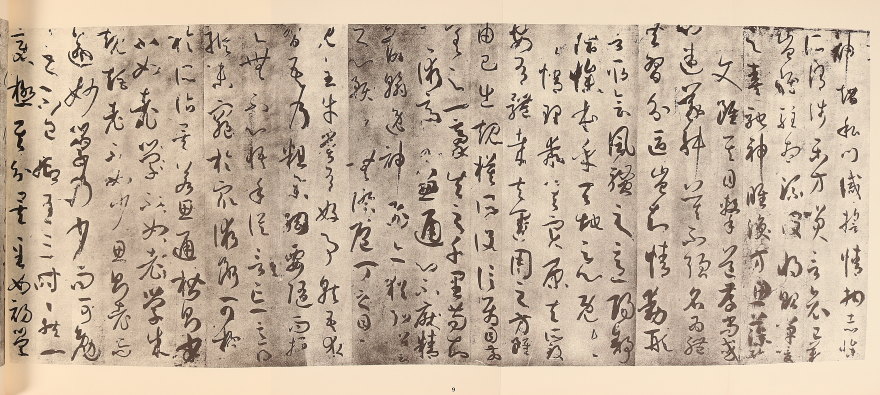 神超私門誡誓情拘志慘
所謂涉樂方笑言哀已歎
豈惟駐想流波將貽嘽噯
之奏馳神睢渙方思藻繪之
文雖其目擊道存尚或
心迷議舛莫不強名為體
共習分區豈知情動形
言取會風騷之意陽舒
陰慘本乎天地之心既失
其情理乖其實原夫所致
安有體哉夫運用之方雖
由己出規模所設信屬目前
差之一豪失之千里苟知
其術適可兼通心不厭精
翰逸神飛亦猶弘羊
之心預乎無際庖丁之目不
見全牛嘗有好事就吾求
習吾乃粗舉綱要隨而授
之無不心悟手從言忘意得
縱未窮於眾術斷可極
於所詣矣若思通楷則少
不如老學成
規矩老不如少思則老而
逾妙學乃少而可勉
之不已抑有三時時然一
變極其分矣至如初學分
9